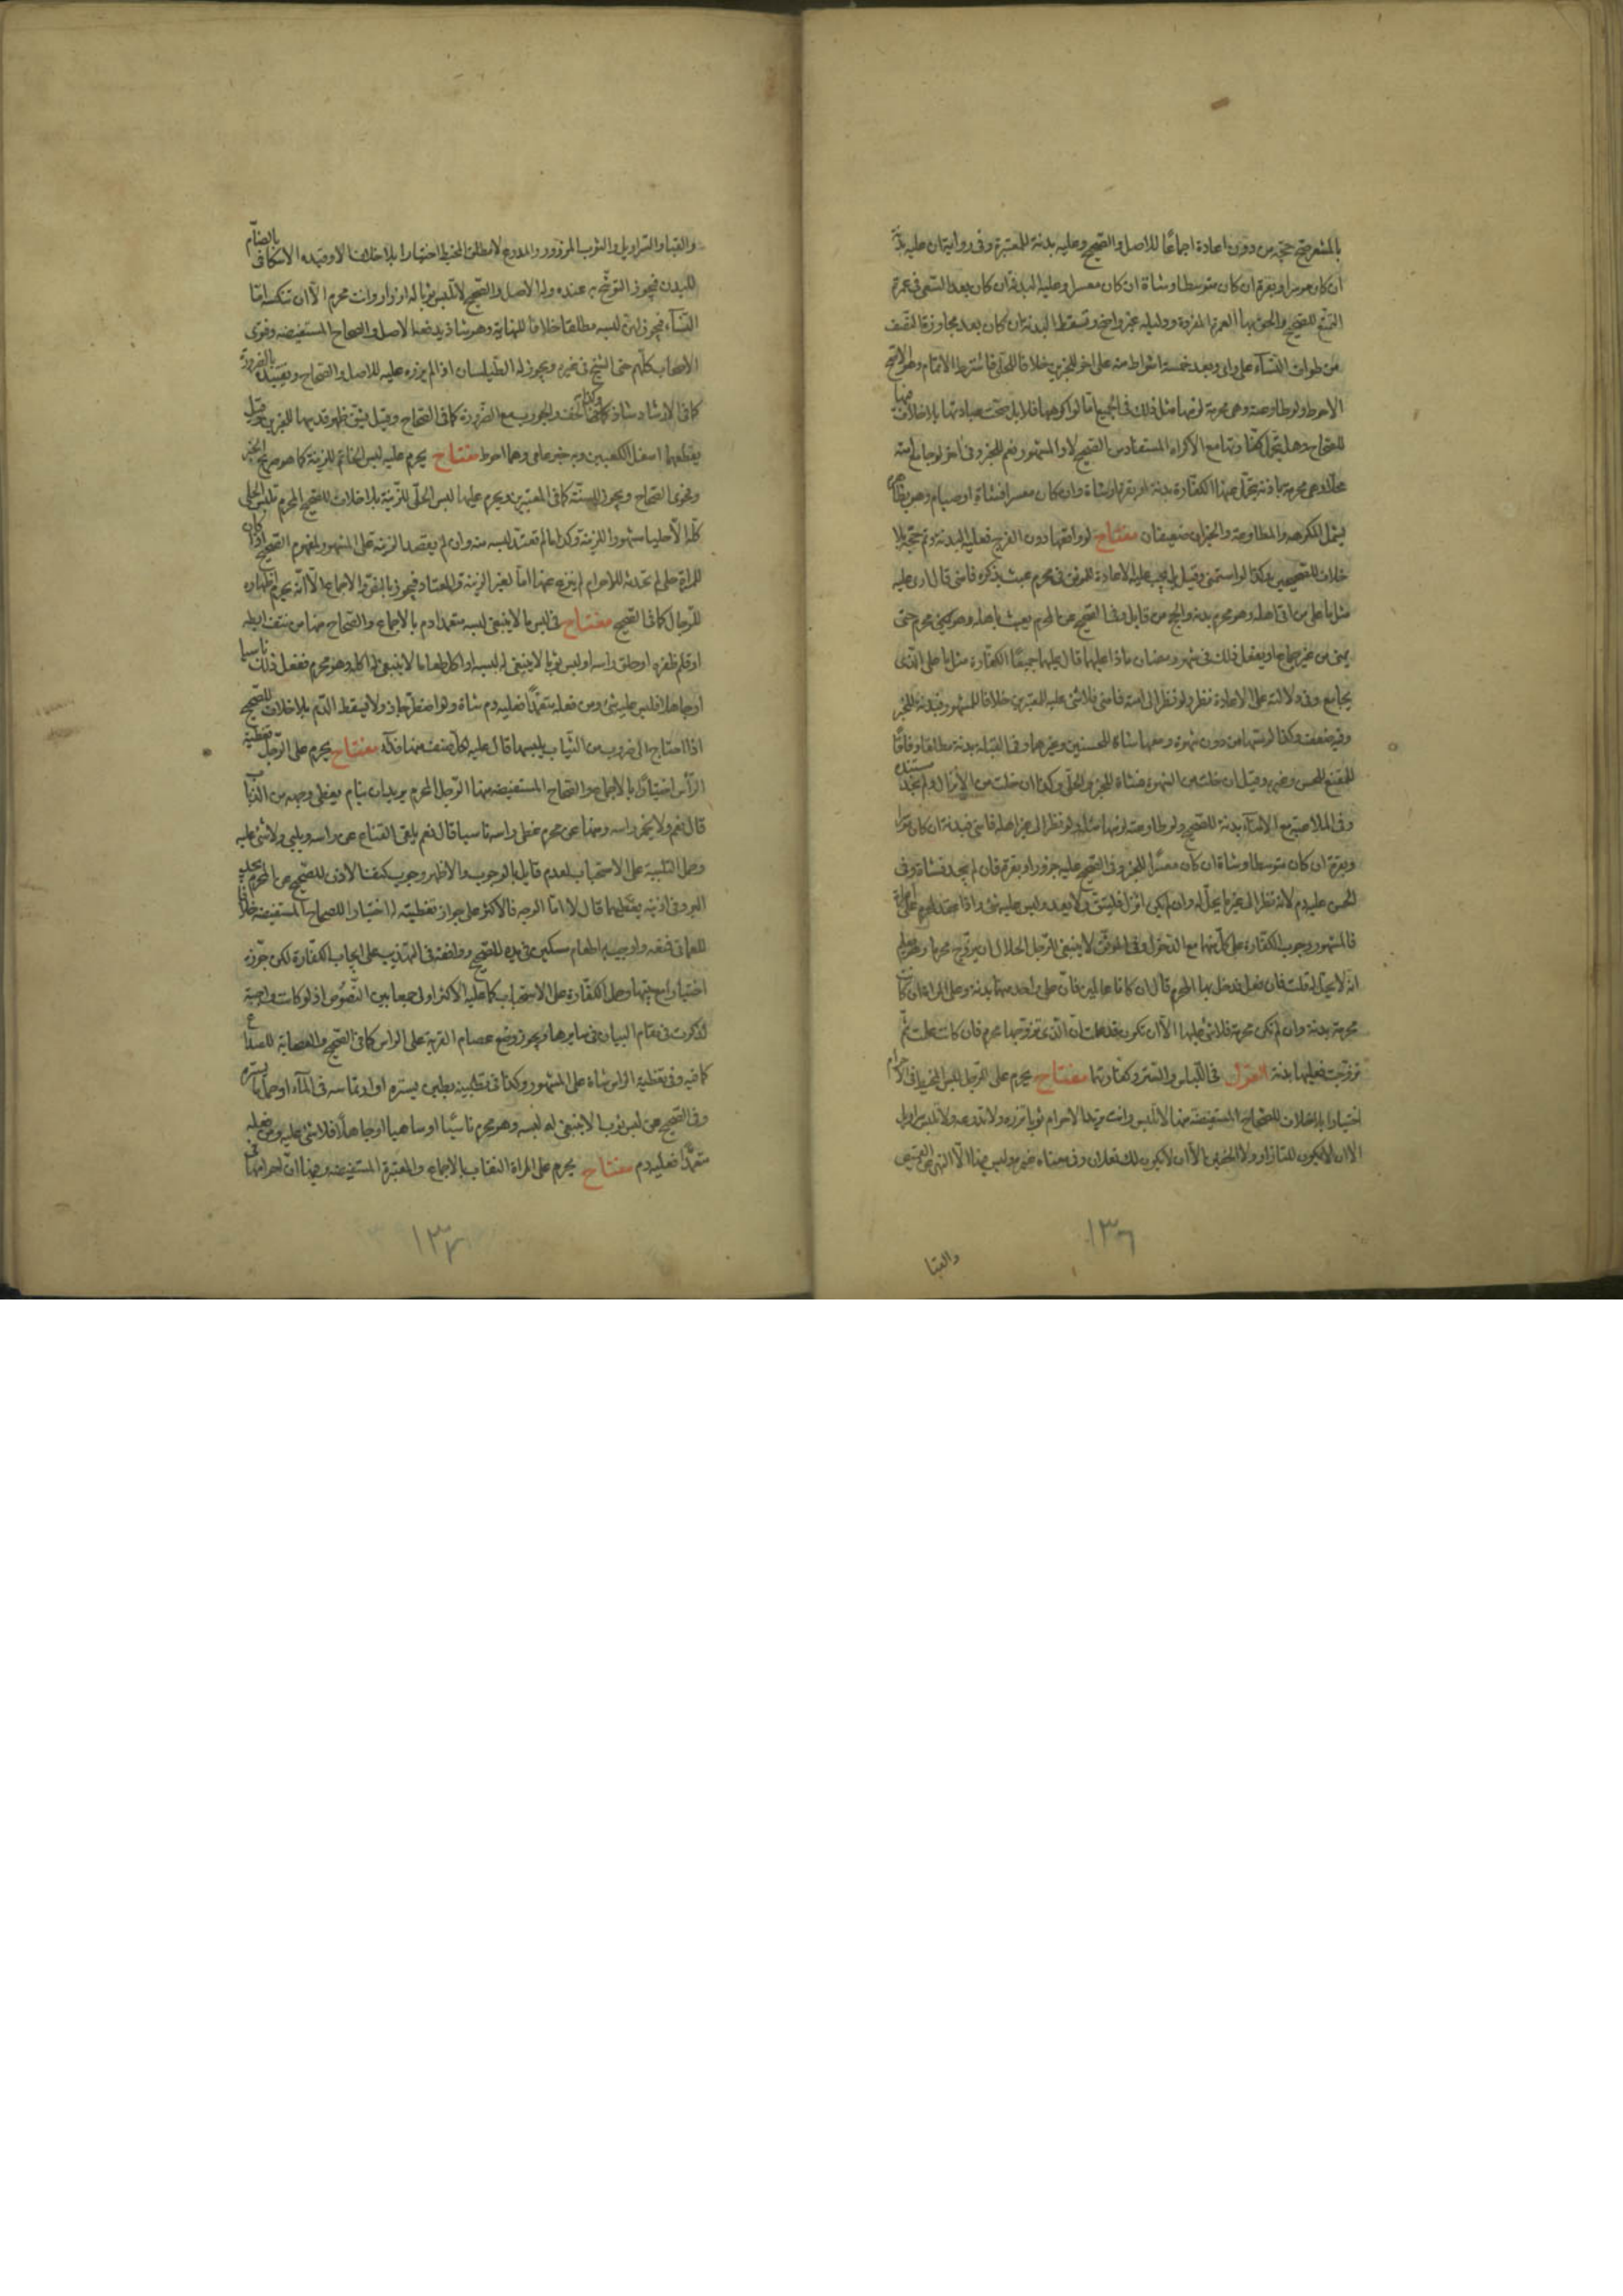 بالمشعر صح حجه من دون اعادة اجماعا للاصل والصحيح وعليه بدنة للمعتبرة وفى روايتان عليه بدنة
ان كان موسرا وبقرة ان كان متوسطا وشاة ان كان معسرا وعليه البدنة ان كان بعد السعى فى عمرة
التمتع للصحيح والحق بها العمرة المفردة ودليله غير واضح وتسقط البدنة ان كان بعد مجاوزة النصف
من طواف النساء على راى وبعد خمسة اشواط منه على اخر للخبرين خلافا للحلى فاشترط الاتمام وهو الاصح
الاحوط ولو طاوعته وهى محرمة لزمها مثل ذلك فى الجميع اما لو اكرهها فلا بل صحت عبادتها بلا خلاف منها
للصحاح وهل يتحمل كفارتها مع الاكراه المستفاد من الصحيح لا والمشهور نعم للخبر وفى اخر لو جامع امته
محلا وهى محرمة باذنه تحمل عنها الكفارة بدنة او بقرة او شاة وان كان معسرا فشاة او صيام وهو بظاهره
يشمل المكرهه والمطاوعة والخبران ضعيفان مفتاح لو واقعها دون الفرج فعليه البدنة وتم حجه بلا
خلاف للصحيحين وكذا لو استمنى وقيل بل يجب عليه الاعادة للموثق فى محرم عبث بذكره فامنى قال ارى عليه
مثل ما على من اتى اهله وهو محرم بدنة والحج من قابل وفى الصحيح عن المحرم يعبث باهله وهو محرم حتى
يمنى من غير جماع او يفعل ذلك فى شهر رمضان ماذا عليهما قال عليهما جميعا الكفارة مثل ما على الذى
يجامع وفى دلالته على الاعادة نظر ولو نظر الى امته فامنى فلا شئ عليه للمعتبرين خلافا للمشهور فبدنة للخبر
وفيه ضعف وكذا لو مسها من دون شهوة ومعها شاة للحسنين وغيرهما وفى القبلة بدنة مطلقا وفاقا
للمقنع للحسن وغيره وقيل ان خلت من الشهوة فشاة للخبر والحلى وكذا ان خلت من الانزال ولم نجد مستنده
وفى الملاعبة مع الامناء بدنة للصحيح ولو طاوعته لزمها مثله ولو نظر الى غير اهله فامنى فبدنة ان كان موسرا
وبقرة ان كان متوسطا وشاة ان كان معسرا للخبر وفى الصحيح عليه جزور او بقرة فان لم يجد فشاة وفى
الحسن عليه دم لانه نظر الى غير ما يحل له وان لم يكن انزل فليتق الله ولا يعد وليس عليه شئ واذا عقد المحرم على امراة
فالمشهور وجوب الكفارة على كل منهما مع الدخول وفى الموثق لا ينبغى للرجل الحلال ان يزوج محرما وهو يعلم
انه لا يحل له قلت فان فعل فدخل بها المحرم قال ان كانا عالمين فان على واحد منهما بدنة وعلى المراة ان كانت
محرمة بدنة وان لم تكن محرمة فلا شئ عليها الا ان تكون قد علمت ان الذى تزوجها محرم فان كانت علمت ثم
تزوجت فعليها بدنة القول فى اللباس والستر وكفارتهما مفتاح يحرم على الرجل لبس المخيط فى الاحرام
اختيارا بلا خلاف للصحاح المستفيضة منها لا تلبس وانت تريد الاحرام ثوبا تزره ولا تدرعه ولا تلبس سراويل
الا ان لا يكون لك ازار ولا الخفين الا ان لا يكون لك نعلان وفى معناه غيره وليس فيها الا النهى عن القميص
والقبا
١٣٦
والقبا والسراويل والثوب المزرور والمدرع لا مطلق المخيط اختيارا بلا خلاف الا وقيده الاسكافى بالضام
للبدن فيجوز التوشح به عنده وله الاصل والصحيح لا تلبس ثوبا له ازرار وانت محرم الا ان تنكسه اما
النساء فيجوز لهن لبسه مطلقا خلافا للنهاية وهو شاذ يدفعه الاصل والصحاح المستفيضه وفتوى
الاصحاب كلهم حتى الشيخ فى غيره ويجوز له الطيلسان اذا لم يزره عليه للاصل والصحاح وتقييده بالضرورة
كما فى الارشاد شاذ كالخفا وكذا الخف والجورب مع الضرورة كما فى الصحاح وقيل يشق ظهر قدميهما للخبرين وقيل
يقطعهما اسفل الكعبين وبه خبر عامى وهما احوط مفتاح يحرم عليه لبس الخاتم للزينة كما هو صريح الخبر
وفحوى الصحاح ويجوز للسنة كما فى المعتبرين ويحرم عليها لبس الحلى للزينة بلا خلاف للصحيح المحرمة تلبس الحلى
كله الا حليا مشهورا للزينة وكذا ما لم تعتد لبسه منه وان لم يقصد الزينة على المشهور لمفهوم الصحيح اذا كان
للمراة حلى لم تحدثه للاحرام لم ينزع عنها اما لغير الزينة والمعتاد فيجوز بالنص والاجماع الا انه يحرم اظهاره
للرجال كما فى الصحيح مفتاح فى لبس ما لا ينبغى لبسه متعمدا دم بالاجماع والصحاح منها من نتف ابطه
او قلم ظفره او حلق راسه او لبس ثوبا لا ينبغى له لبسه او اكل طعاما لا ينبغى له اكله وهو محرم ففعل ذلك ناسيا
او جاهلا فليس عليه شئ ومن فعله متعمدا فعليه دم شاة ولو اضطر جاز ولا يسقط الدم بلا خلاف للصحيح
اذا احتاج الى ضروب من الثياب يلبسها قال عليه لكل صنف منها فداء مفتاح يحرم على الرجل تغطية
الراس اختيارا بالاجماع والصحاح المستفيضه منها الرجل المحرم يريد ان ينام يغطى وجهه من الذباب
قال نعم ولا يخمر راسه ومنها عن محرم غطى راسه ناسيا قال نعم يلقى القناع عن راسه ويلبى ولا شئ عليه
وحمل التلبية على الاستحباب لعدم قايل بالوجوب والاظهر وجوب كشف الاذن للصحيح عن المحرم يجد
البرد فى اذنيه يغطيهما قال لا اما الوجه فالاكثر على جواز تغطيته له اختيارا للصحاح المستفيضه خلافا
للعمانى فمنعه واوجب اطعام مسكين فى يده للصحيح ووافقه فى التهذيب على ايجاب الكفارة لكن جوزه
اختيارا وحمل الكفارة على الاستحباب كما عليه الاكثر اولى جمعا بين النصوص اذ لو كانت واجبة
لذكرت فى مقام البيان فى سايرها ويجوز وضع عصام القربة على الراس كما فى الصحيح والعصابة للصداع
كما فيه وفى تغطية الراس شاة على المشهور وكذا فى تطيينه بطين يستره او ارتماسه فى الماء او حمل ما يستره
وفى الصحيح من لبس ثوبا لا ينبغى له لبسه وهو محرم ناسيا او ساهيا او جاهلا فلا شئ عليه ومن فعله
متعمدا فعليه دم مفتاح يحرم على المراة النقاب بالاجماع والمعتبرة المستفيضه منها ان احرامها فى